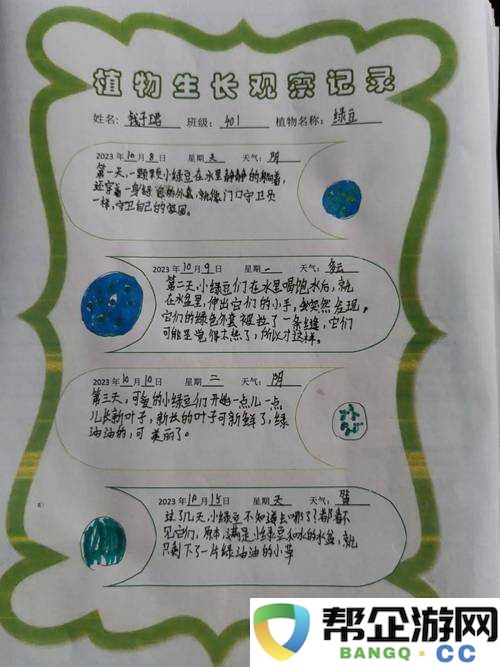 植物生长观察记录
姓名：钱子珺 班级：401 植物名称：绿豆
2023年10月8日 星期天 天气：阴
第一天，一颗颗小绿豆在水里静静的躺着，
还穿着一身绿 外套，就像门口守卫员
一样，守卫自己的家园。
2023年10月9日 星期一 天气：多云
第二天，小绿豆们在水里喝饱水后，就
在水盆里，伸出它们的小手，我突然发现，
它们的绿色外套被拉了一条缝，它们
可能是觉得不热了，所以才这样。
2023年10月10日 二 天气：阴
第三天，可爱的小绿豆们开始一点儿一点
儿长新叶子，新长的叶子可新鲜了，绿
油油的，可美丽了。
2023年10月15日 星期天 天气：
过了几天，小绿豆不知道去哪了？都看不
见它们，原本满是小绿豆和水的水盆，就
只剩下了一片绿油油的小草
帮企游网
BANGQ·CC